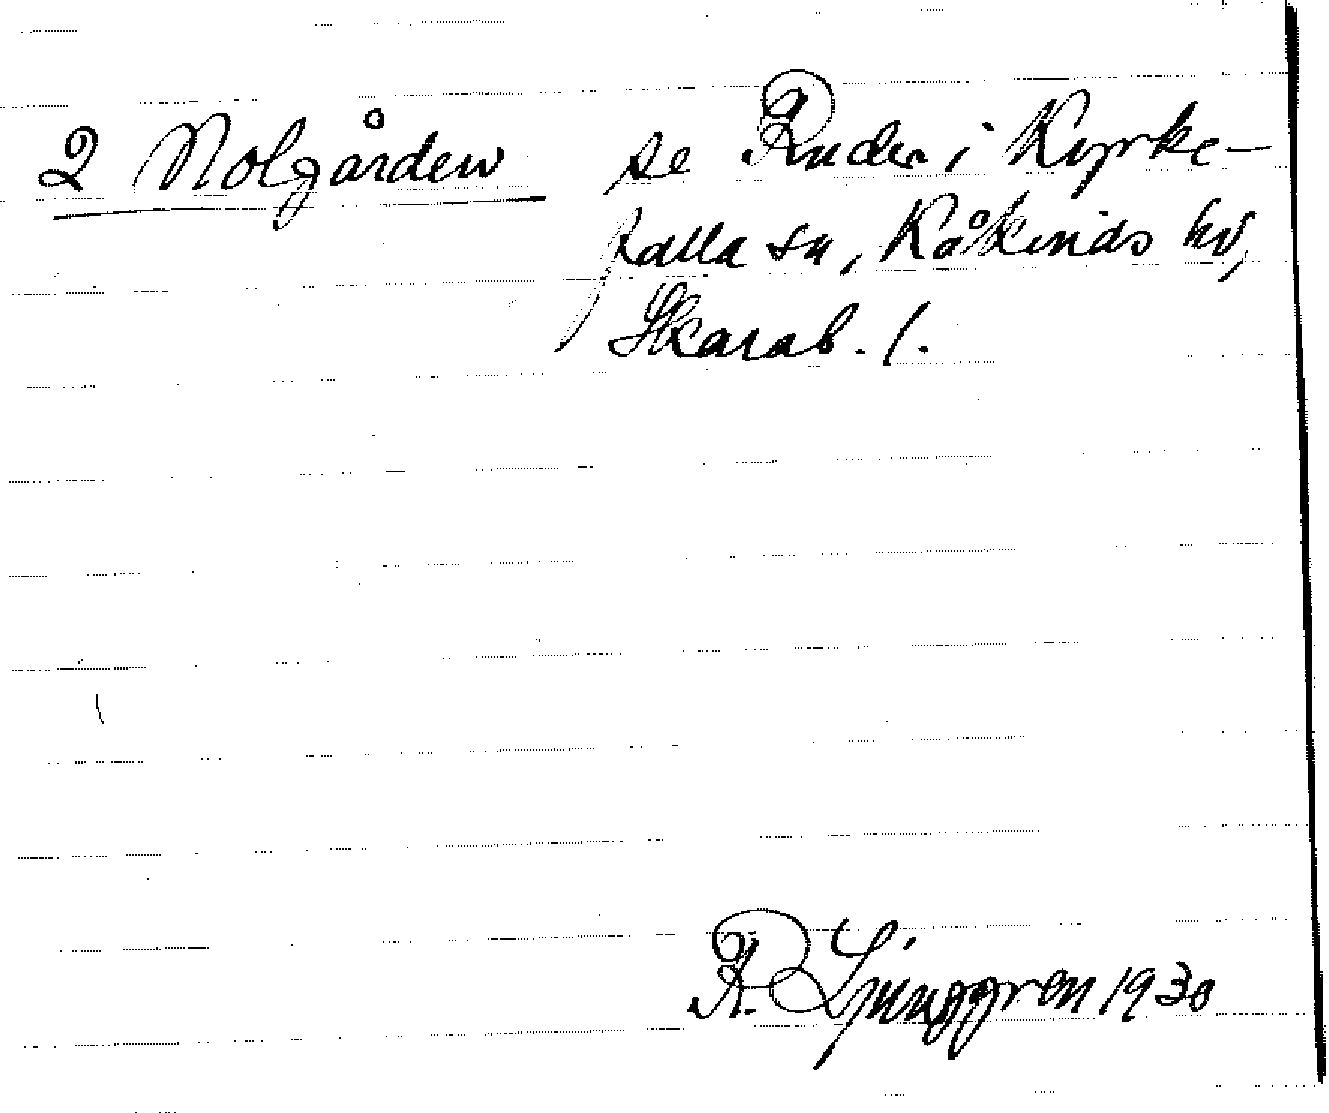 2 Nolgården se Ruder i Kyrke-
falla sn, Kåkinds hd,
Skarab. l.
R. Ljunggren 1930